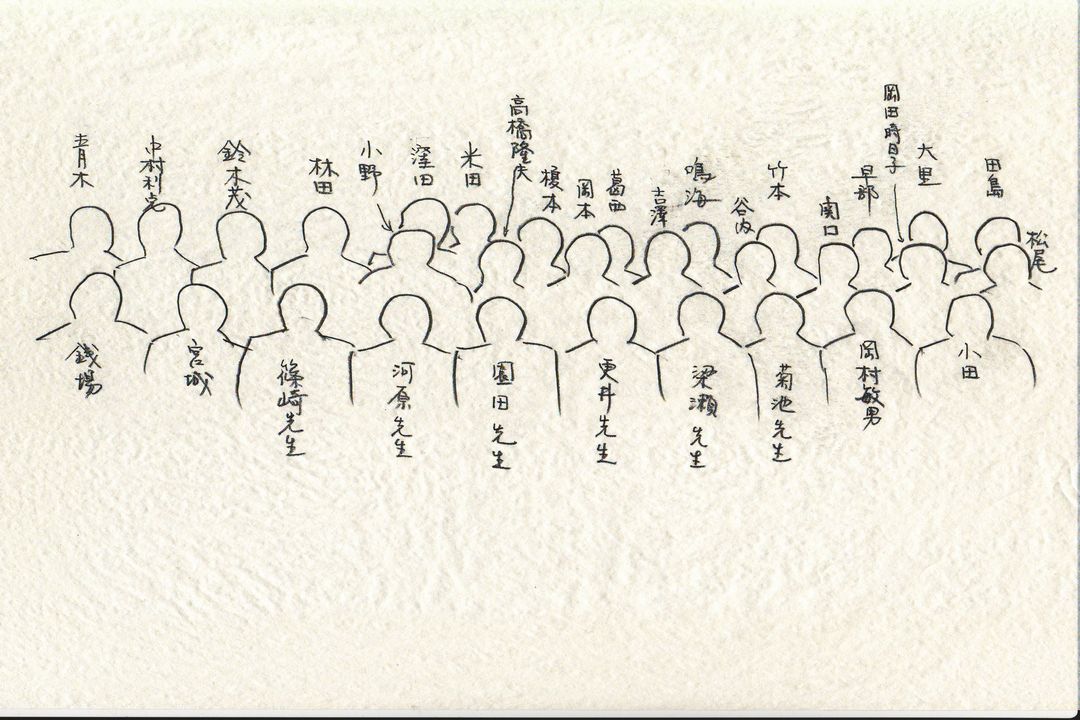 青木
中村利宅
鈴木茂
林田
小野
窪田
米田
高橋隆夫
榎本
岡本
葛西
吉澤
鳴海
谷内
竹本
関口
早部
岡田時日子
大里
田島
松尾
銭場
宮城
篠崎先生
河原先生
園田先生
更井先生
梁瀬先生
菊池先生
岡村敏男
小田